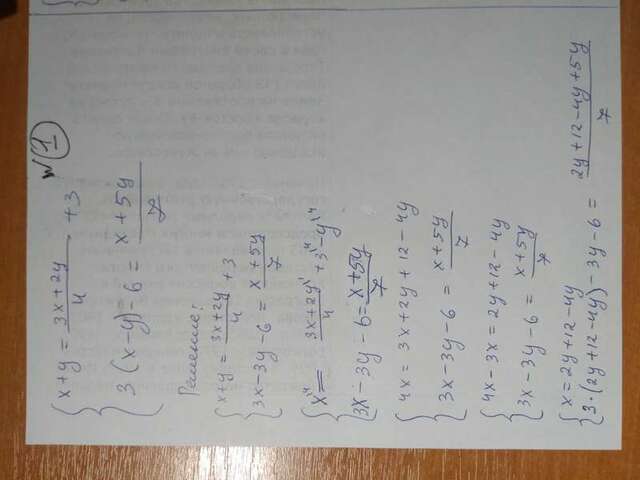 N(1)
{ x+y = \frac{3x+2y}{4} + 3
{ 3(x-y)-6 = \frac{x+5y}{7}
Решение:
{ x+y = \frac{3x+2y}{4} + 3
{ 3x-3y-6 = \frac{x+5y}{7}
{ x^{4} = \frac{3x+2y^{1}}{4} + 3^{4} - y^{4}
{ 3x-3y-6 = \frac{x+5y}{7}
{ 4x = 3x+2y+12-4y
{ 3x-3y-6 = \frac{x+5y}{7}
{ 4x-3x = 2y+12-4y
{ 3x-3y-6 = \frac{x+5y}{7}
{ x = 2y+12-4y
{ 3·(2y+12-4y)-3y-6 = \frac{2y+12-4y+5y}{7}